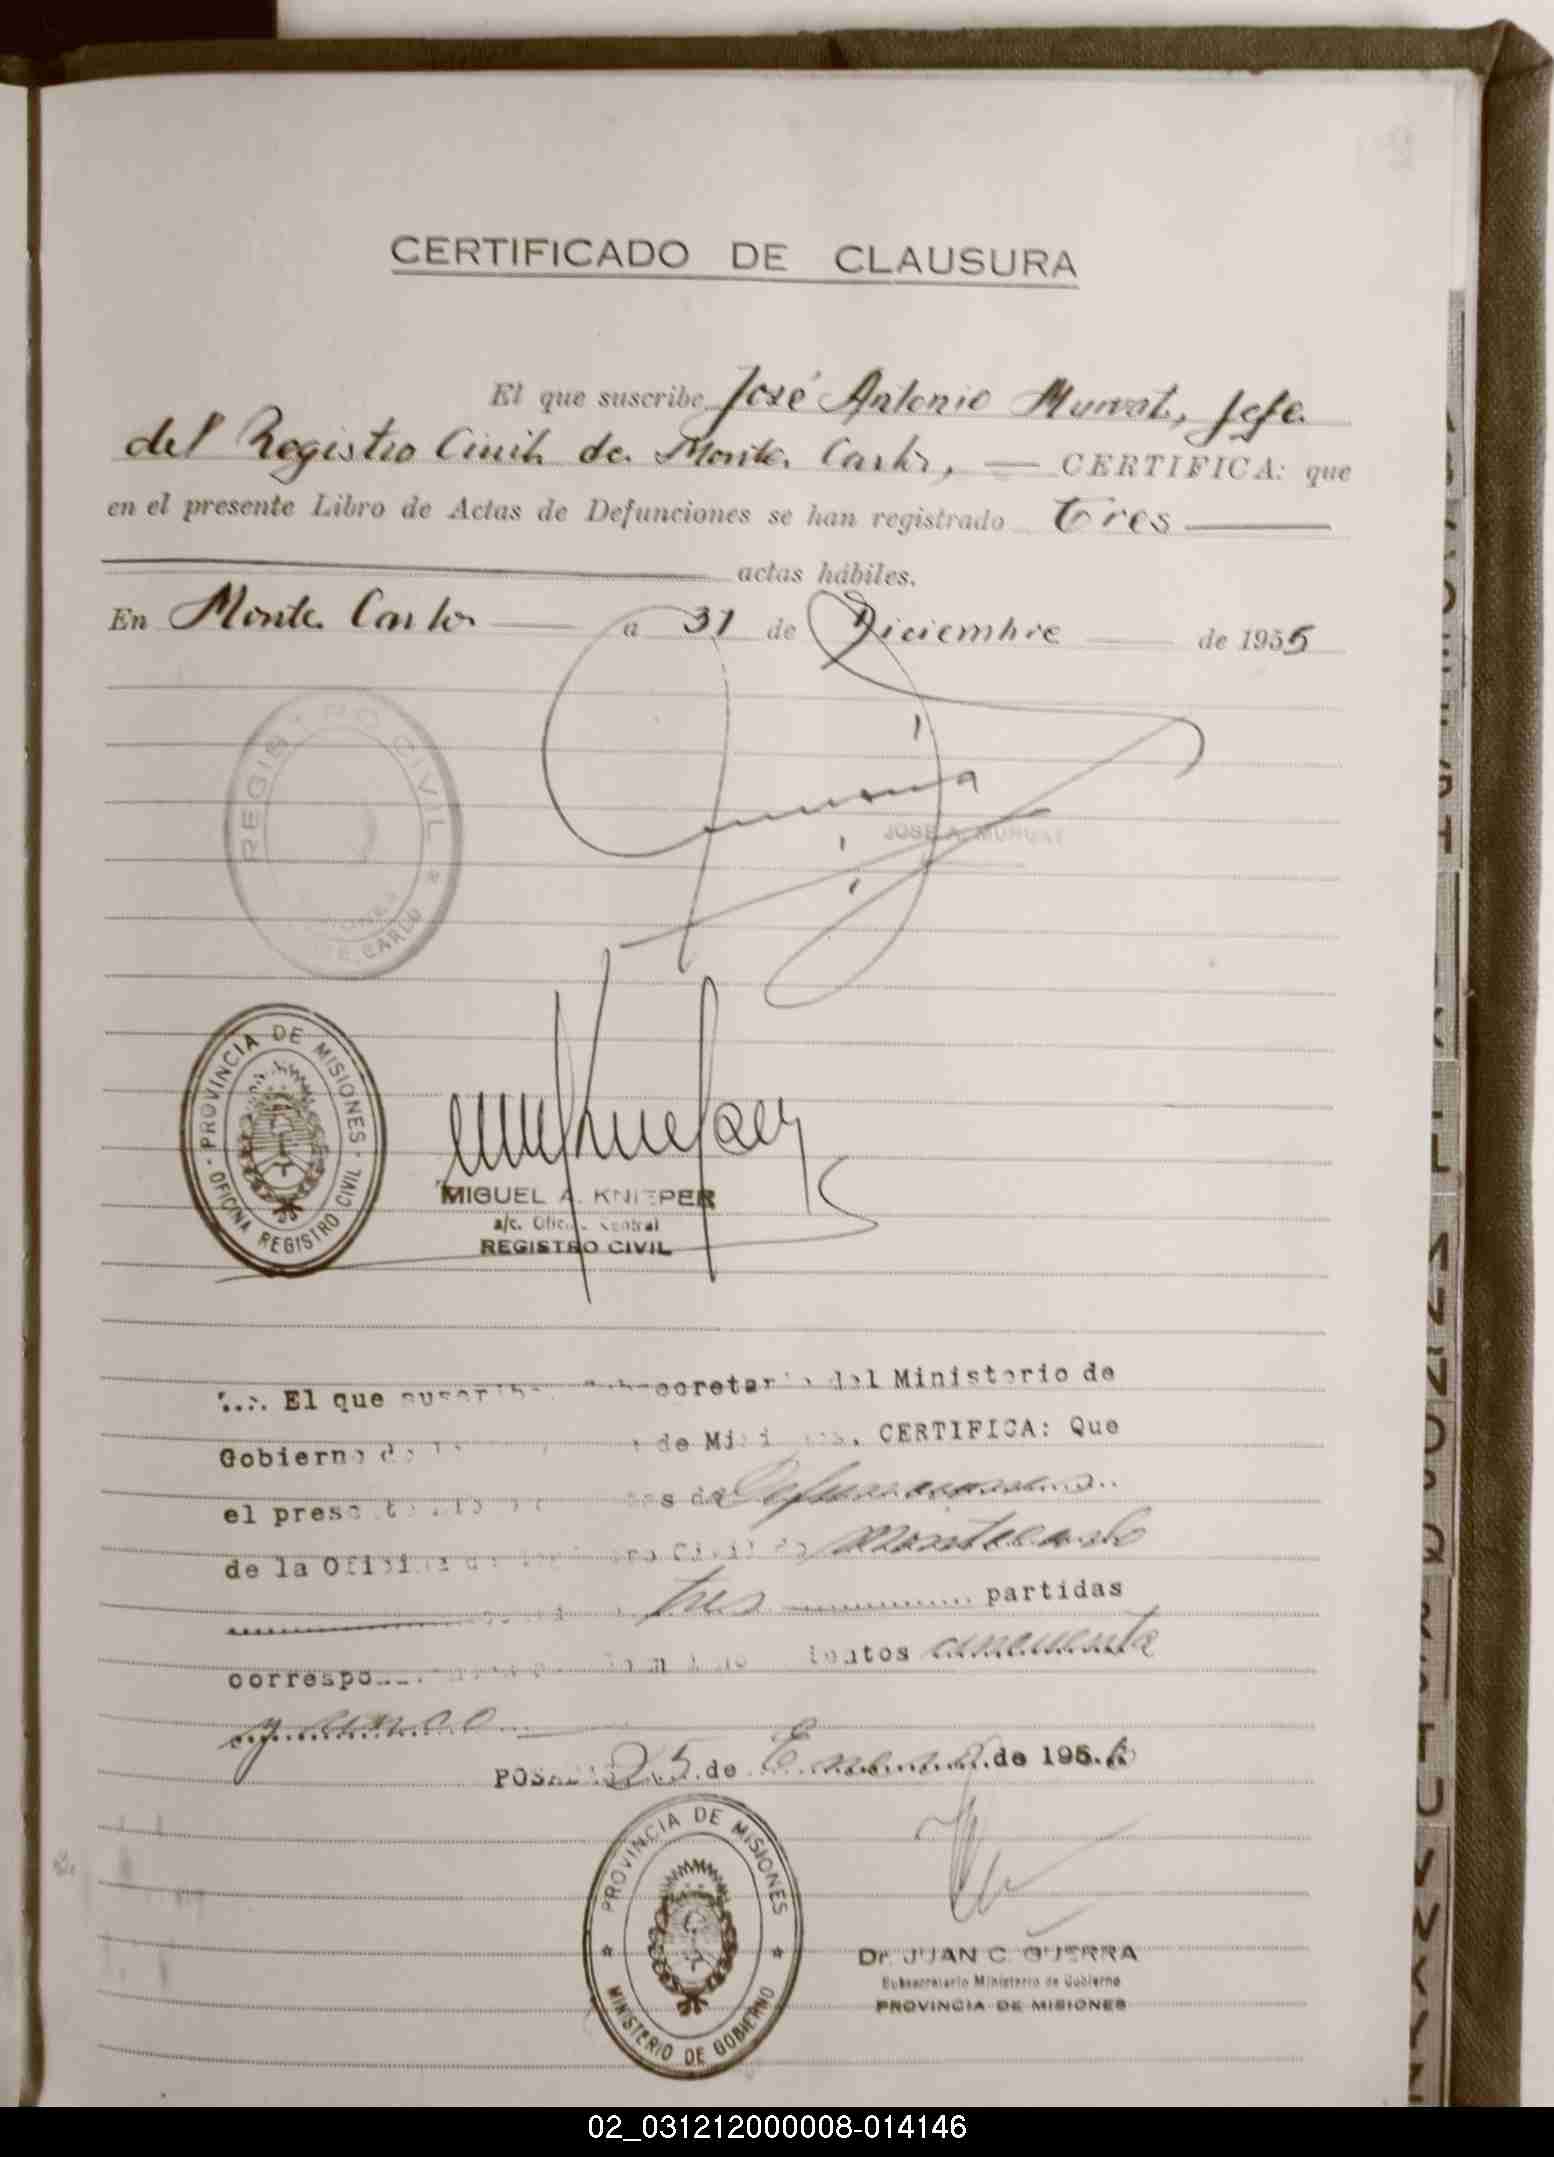 CERTIFICADO DE CLAUSURA
El que suscribe José Antonio Murvat, Jefe
del Registro Civil de Monte Carlo, — CERTIFICA: que
en el presente Libro de Actas de Defunciones se han registrado Tres
actas hábiles.
En Monte Carlo a 31 de Diciembre de 1955
REGISTRO CIVIL
E. CARLO
JOSE A. MURVAT
PROVINCIA DE MISIONES
OFICINA REGISTRO CIVIL
MIGUEL A. KNIEPER
a/c. Oficina Central
REGISTRO CIVIL
El que suscribe, Subsecretario del Ministerio de
Gobierno de Misiones, CERTIFICA: Que
el presente de Defunciones
de la Oficina de Registro Civil de Montecarlo
tres partidas
cincuenta
y cinco
25 de Enero de 1956
PROVINCIA DE MISIONES
MINISTERIO DE GOBIERNO
Dr. JUAN C. GUERRA
Subsecretario Ministerio de Gobierno
PROVINCIA DE MISIONES
02_031212000008-014146